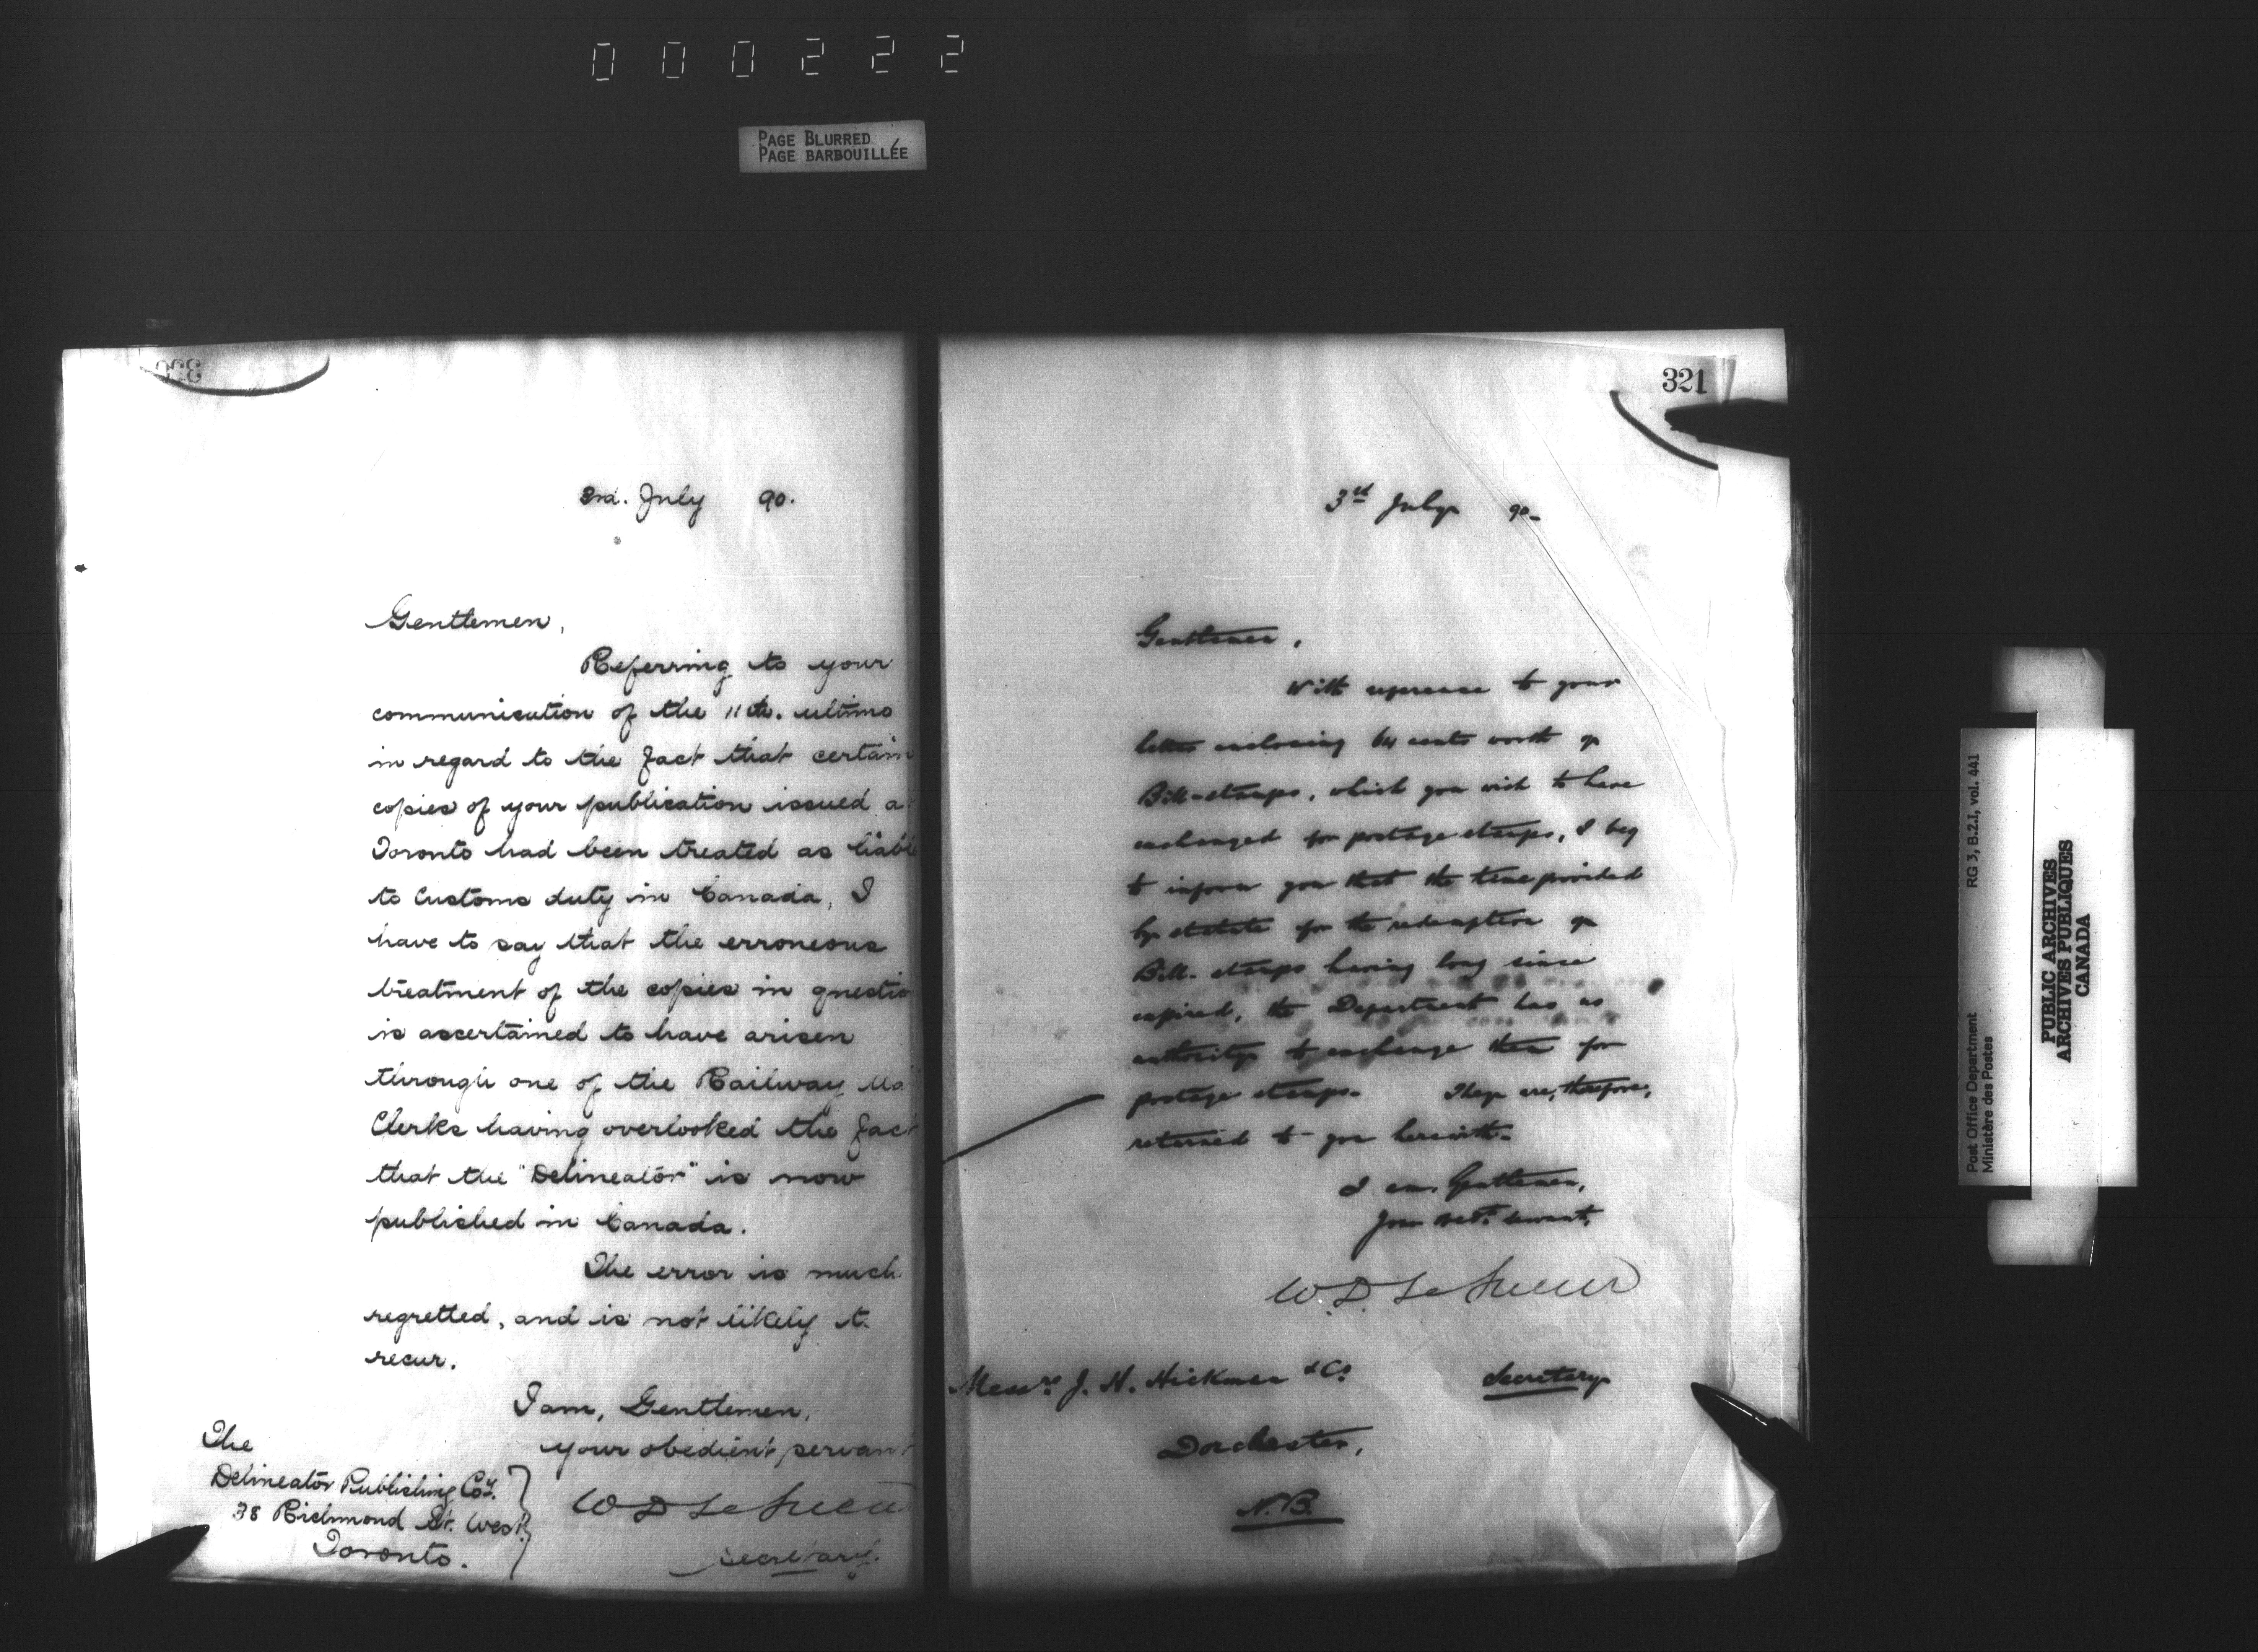 000222
PAGE BLURRED
PAGE BARBOUILLÉE
3rd. July 90.
Gentlemen,
Referring to your
communication of the 11th. ultimo
in regard to the fact that certain
copies of your publication issued a
Toronto had been treated as liable
to Customs duty in Canada, I
have to say that the erroneous
treatment of the copies in questio
is ascertained to have arisen
through one of the Railway Ma
Clerks having overlooked the fact
that the "Delineator" is now
published in Canada.
The error is much
regretted, and is not likely t
recur.
I am, Gentlemen,
your obedient servant
The
Delineator Publishing Coy.
38 Richmond St. West
Toronto.
W D LeSueur
Secretary.
321
3rd July 90-
Gentlemen,
With reference to your
letter enclosing 64 cents worth of
Bill-stamps, which you wish to have
exchanged for postage stamps, I beg
to inform you that the time provided
by statute for the redemption of
Bill-stamps having long since
expired, the Department has no
authority to exchange them for
postage stamps. They are, therefore,
returned to you herewith.
I am, Gentlemen,
Your obedt. servant,
W.D. LeSueur
Secretary
Messrs. J. H. Hickman & Co
Dorchester,
N.B.
Post Office Department RG 3, B.2.I, vol. 441
Ministère des Postes
PUBLIC ARCHIVES
ARCHIVES PUBLIQUES
CANADA